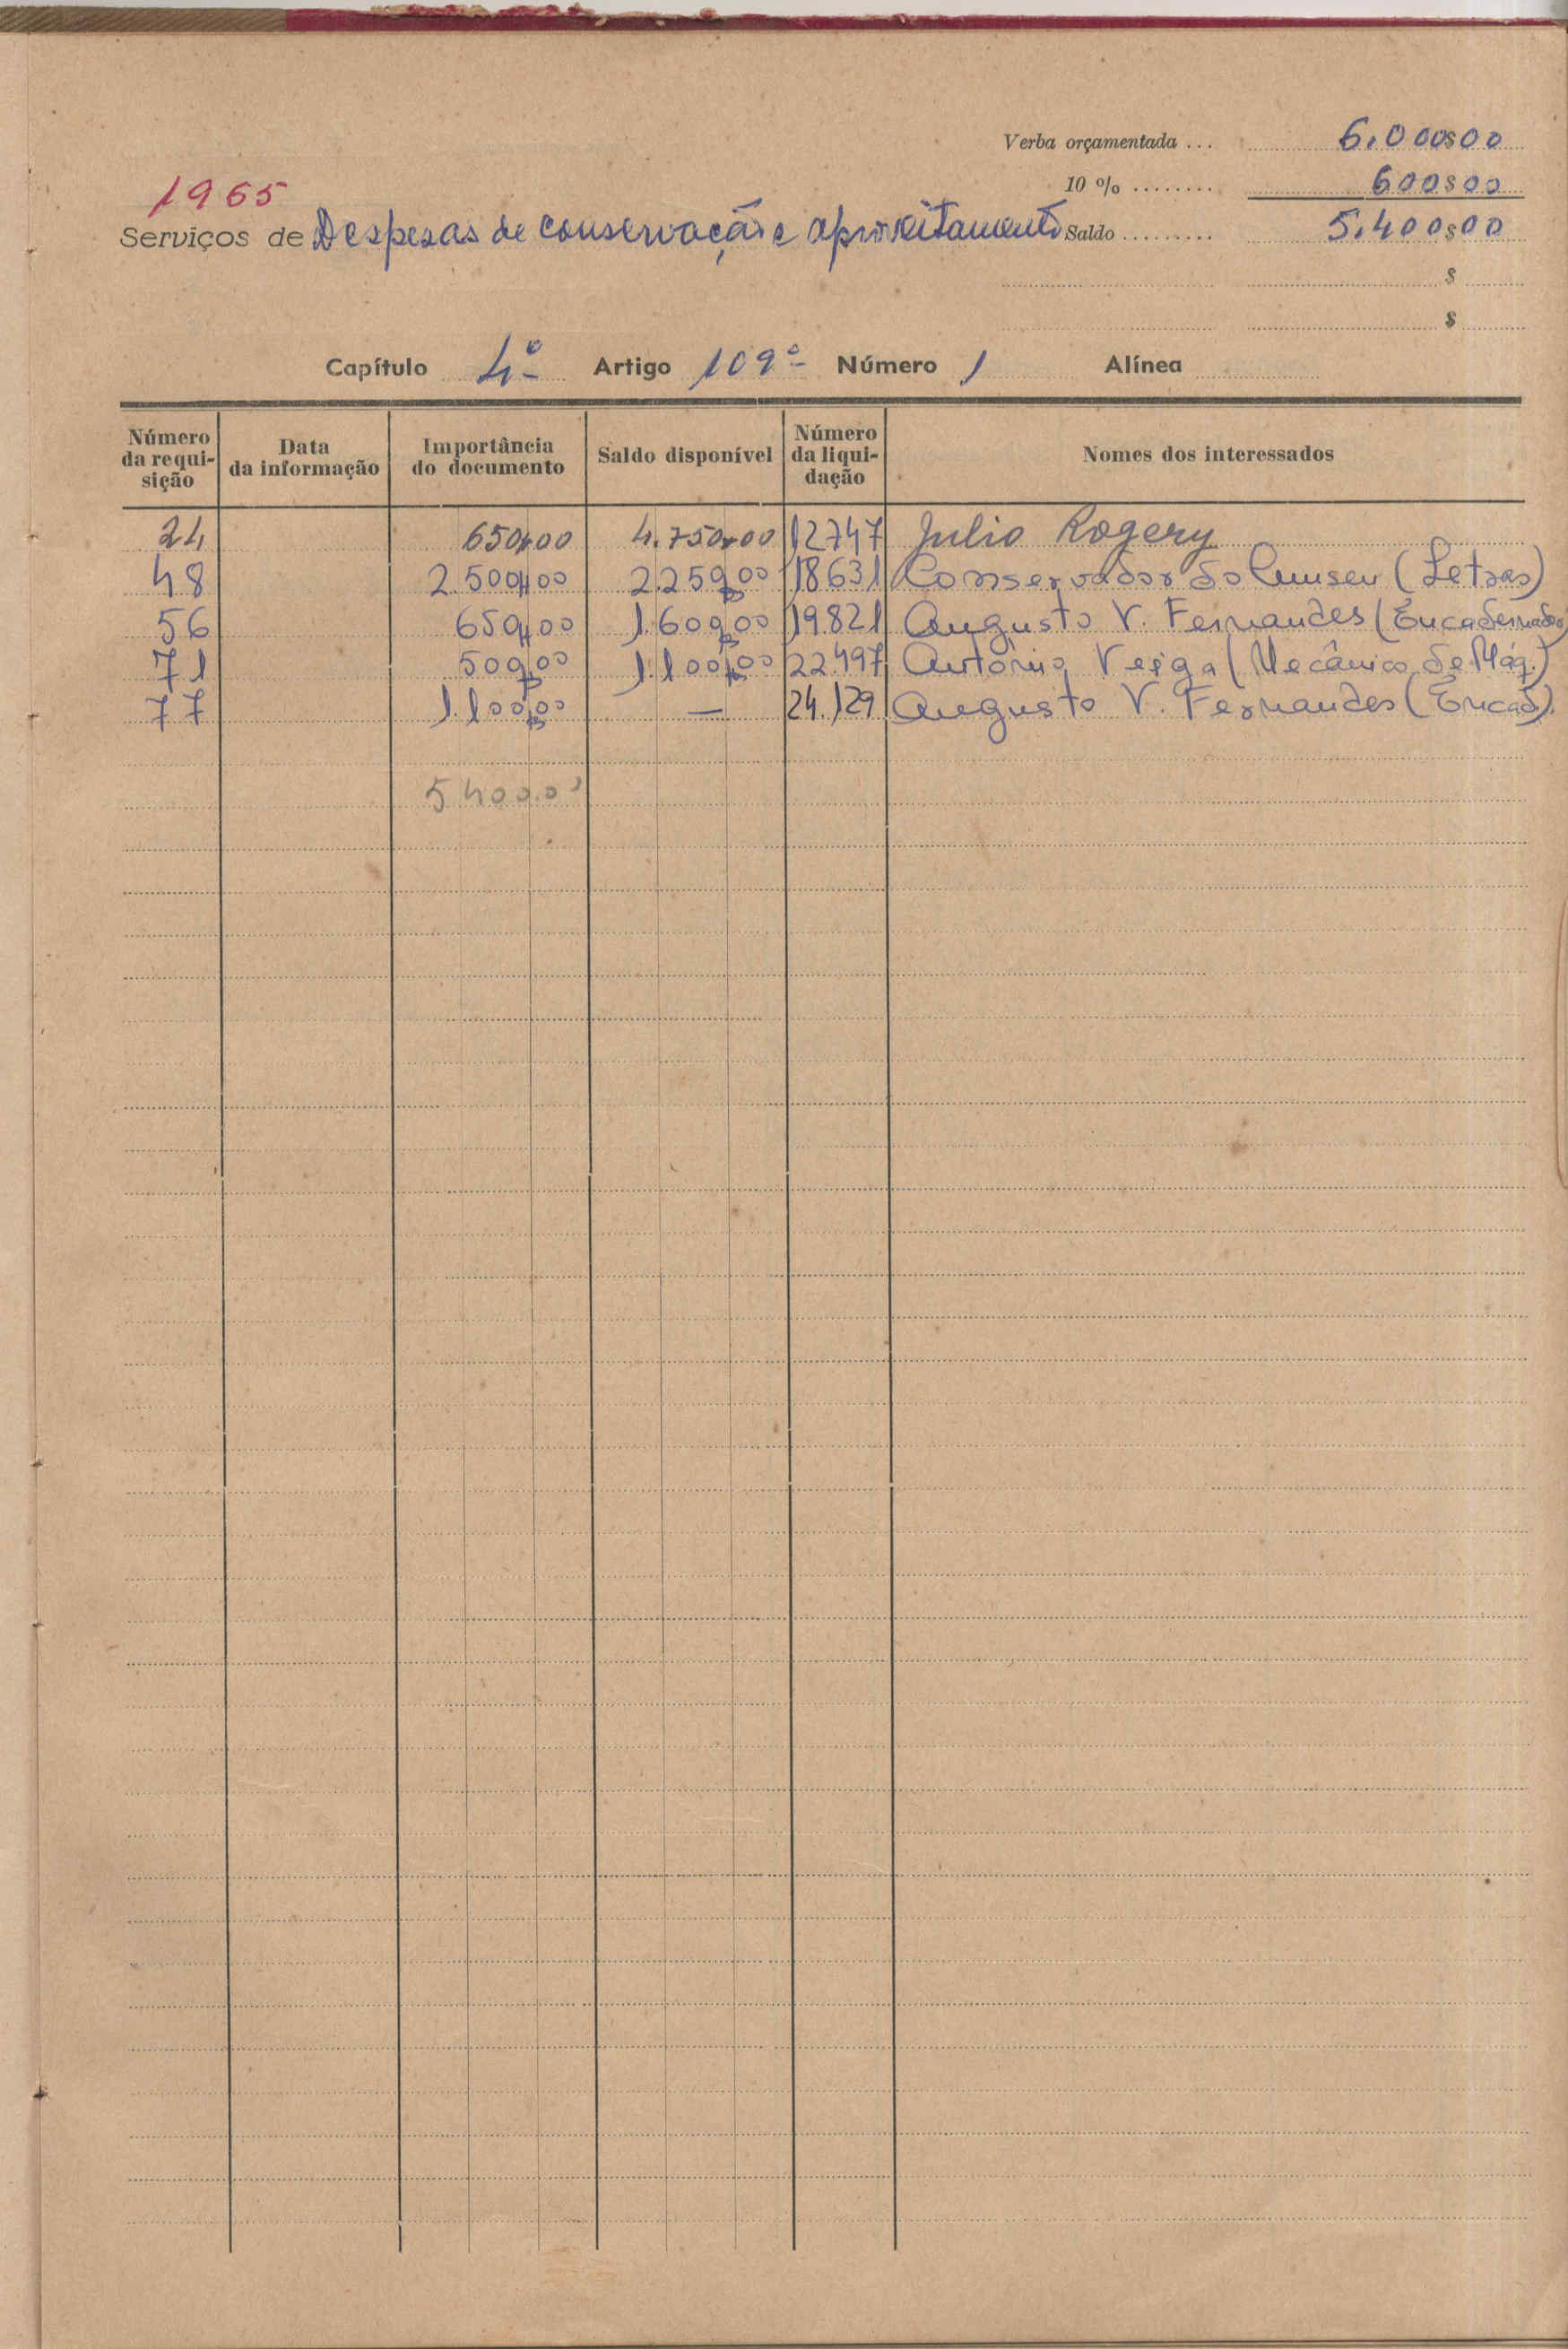 Verba orçamentada ... 6.000$00
10 % ........ 600$00
1965
Serviços de Despesas de conservação e aproveitamento Saldo ......... 5.400$00
$
$
Capítulo 4º Artigo 109º Número 1 Alínea
Número da requi-sição Data da informação Importância do documento Saldo disponível Número da liqui-dação Nomes dos interessados
24 650$00 4.750$00 12747 Julio Rogery
48 2.500$00 2.250$00 18631 Conservador do Museu (Letras)
56 650$00 1.600$00 19.821 Augusto V. Fernandes (Encadernador)
71 500$00 1.100$00 22.497 António Veiga (Mecânico de Máq.)
77 1.100$00 — 24.129 Augusto V. Fernandes (Encad).
5400.00